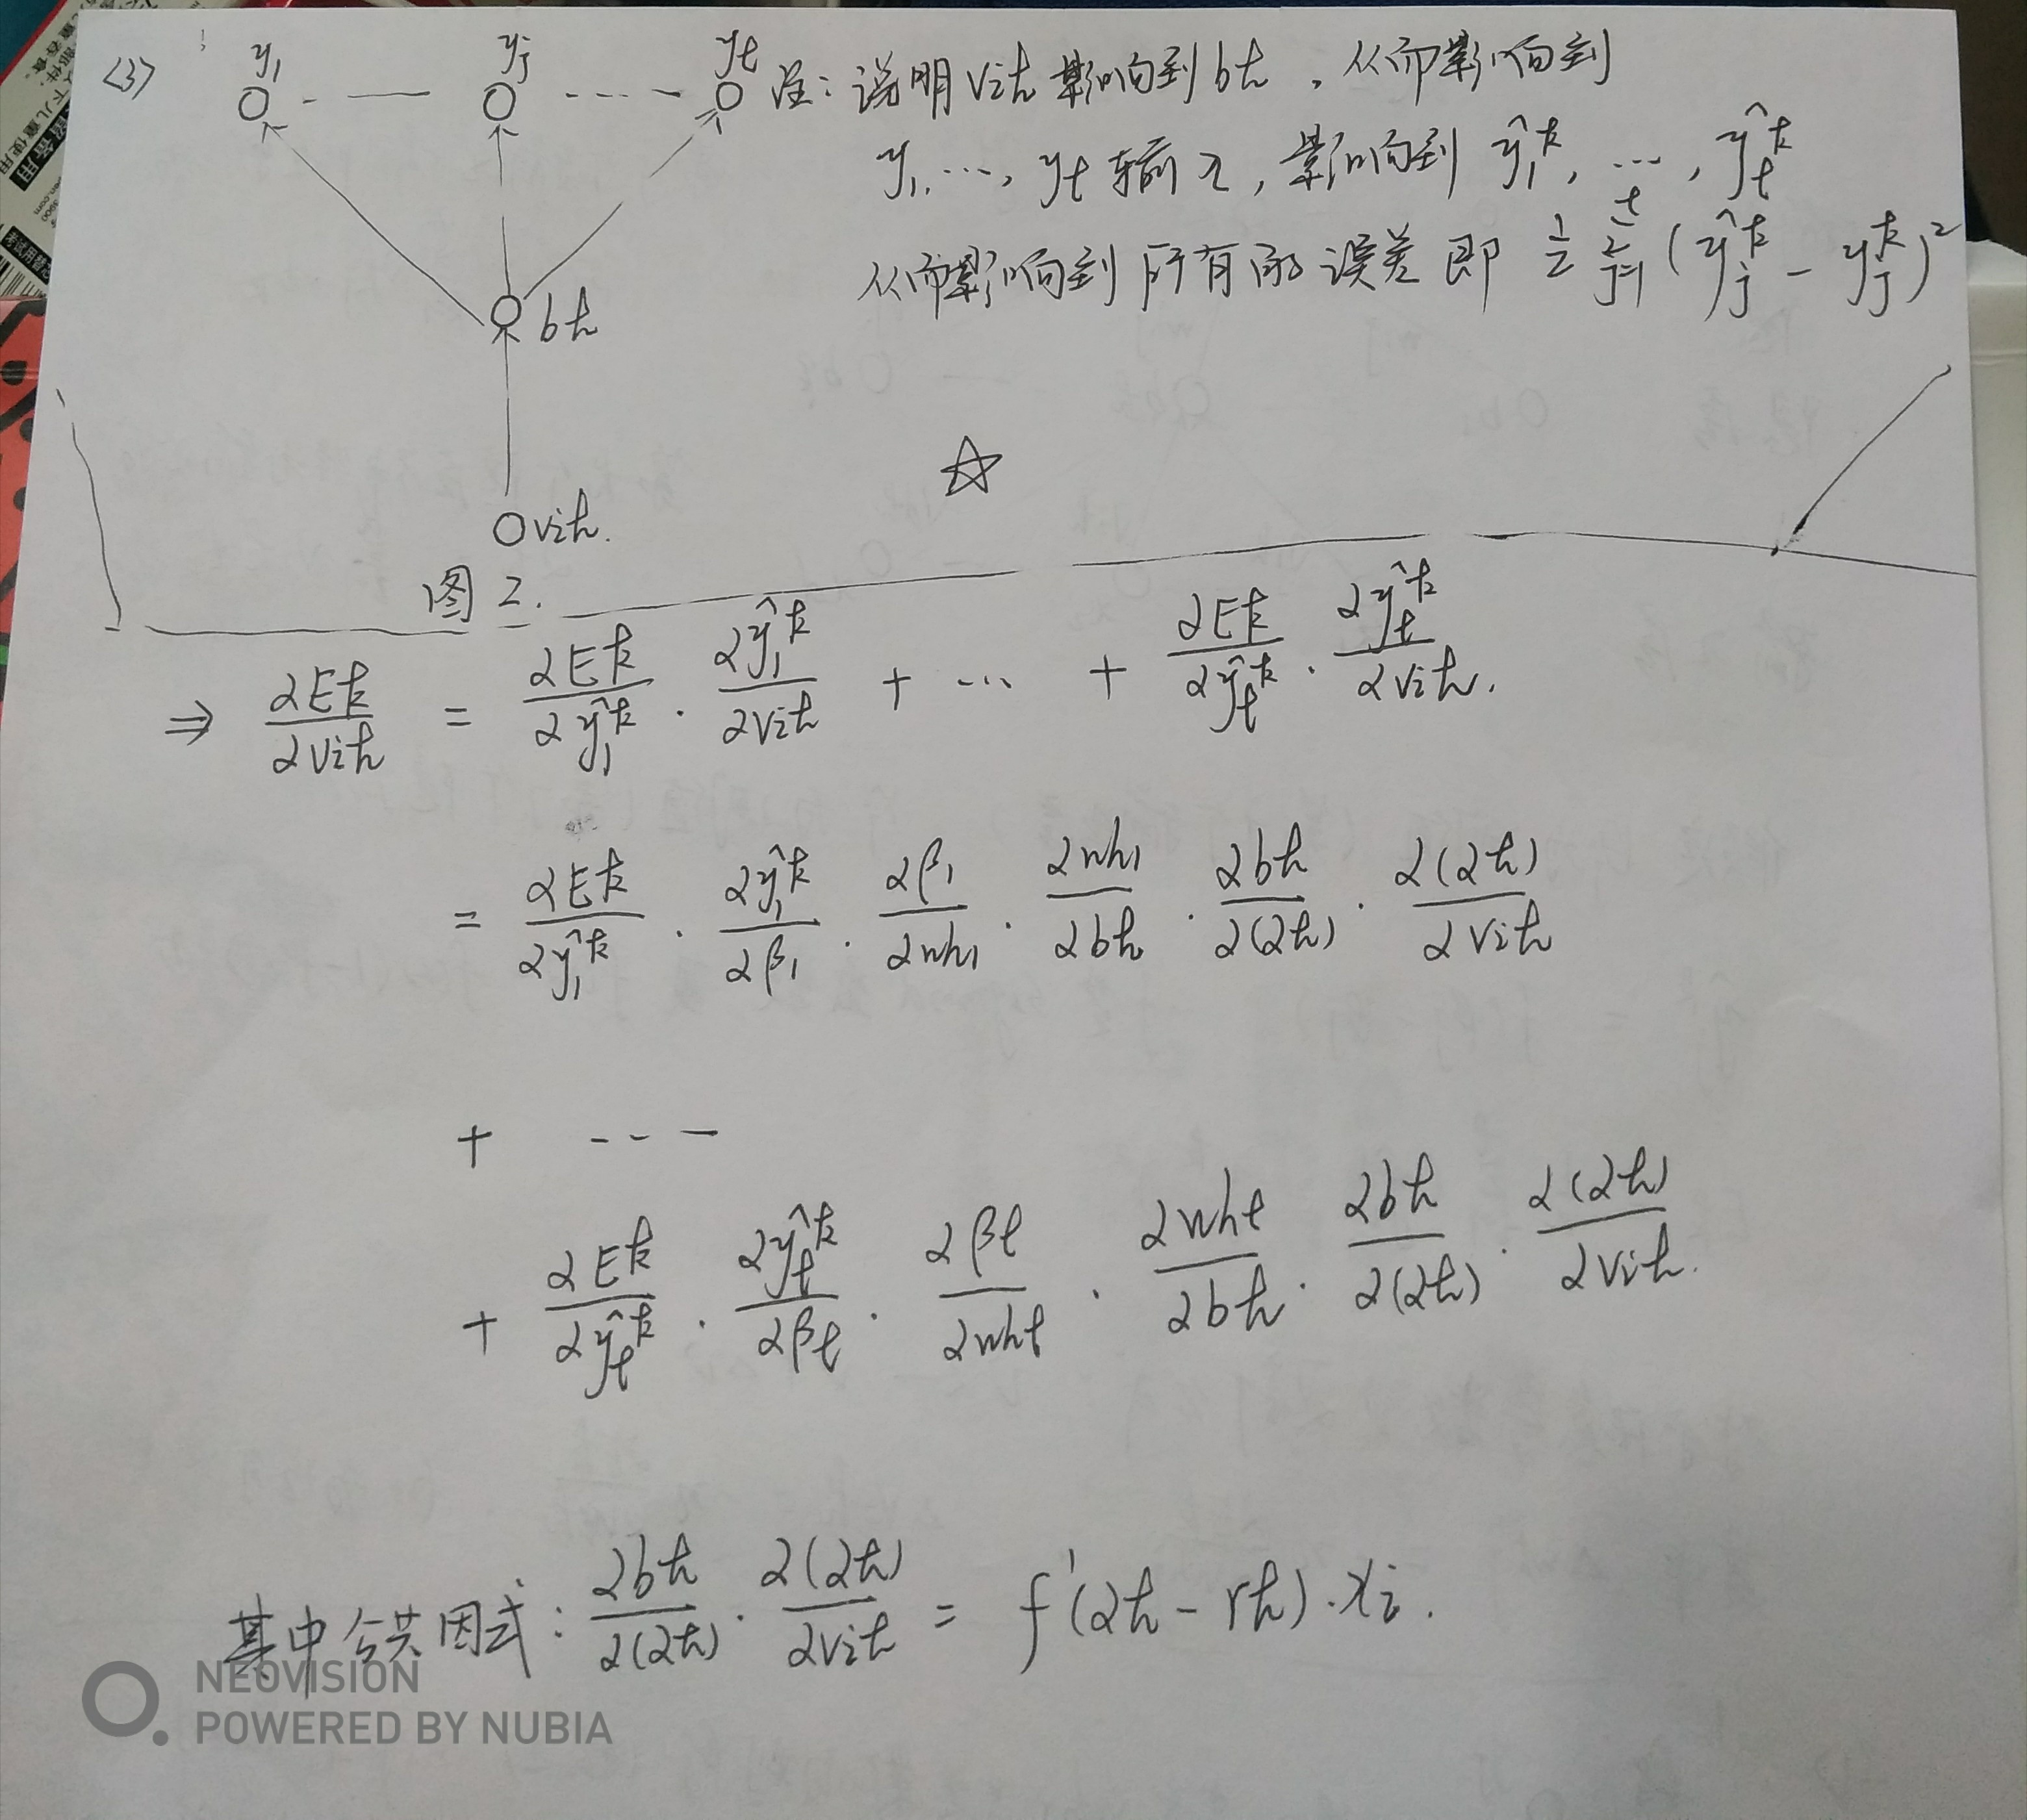 <3>
y₁ yⱼ yₜ
注：说明 vih 影响到 bh，从而影响到
y₁, …, yₜ 输入，影响到 ŷ₁ᵏ, …, ŷₜᵏ
从而影响到所有的误差即 1/2 Σⱼ₌₁ᵗ (ŷⱼᵏ - yⱼᵏ)²
bh
vih.
图2.
⇒ ∂Ek/∂vih = ∂Ek/∂ŷ₁ᵏ · ∂ŷ₁ᵏ/∂vih + … + ∂Ek/∂ŷₜᵏ · ∂ŷₜᵏ/∂vih.
= ∂Ek/∂ŷ₁ᵏ · ∂ŷ₁ᵏ/∂β₁ · ∂β₁/∂wh₁ · ∂wh₁/∂bh · ∂bh/∂(αh) · ∂(αh)/∂vih
+ ----
+ ∂Ek/∂ŷₜᵏ · ∂ŷₜᵏ/∂βt · ∂βt/∂wht · ∂wht/∂bh · ∂bh/∂(αh) · ∂(αh)/∂vih.
其中公共因式: ∂bh/∂(αh) · ∂(αh)/∂vih = f'(αh - rh)·xi.
NEOVISION
POWERED BY NUBIA